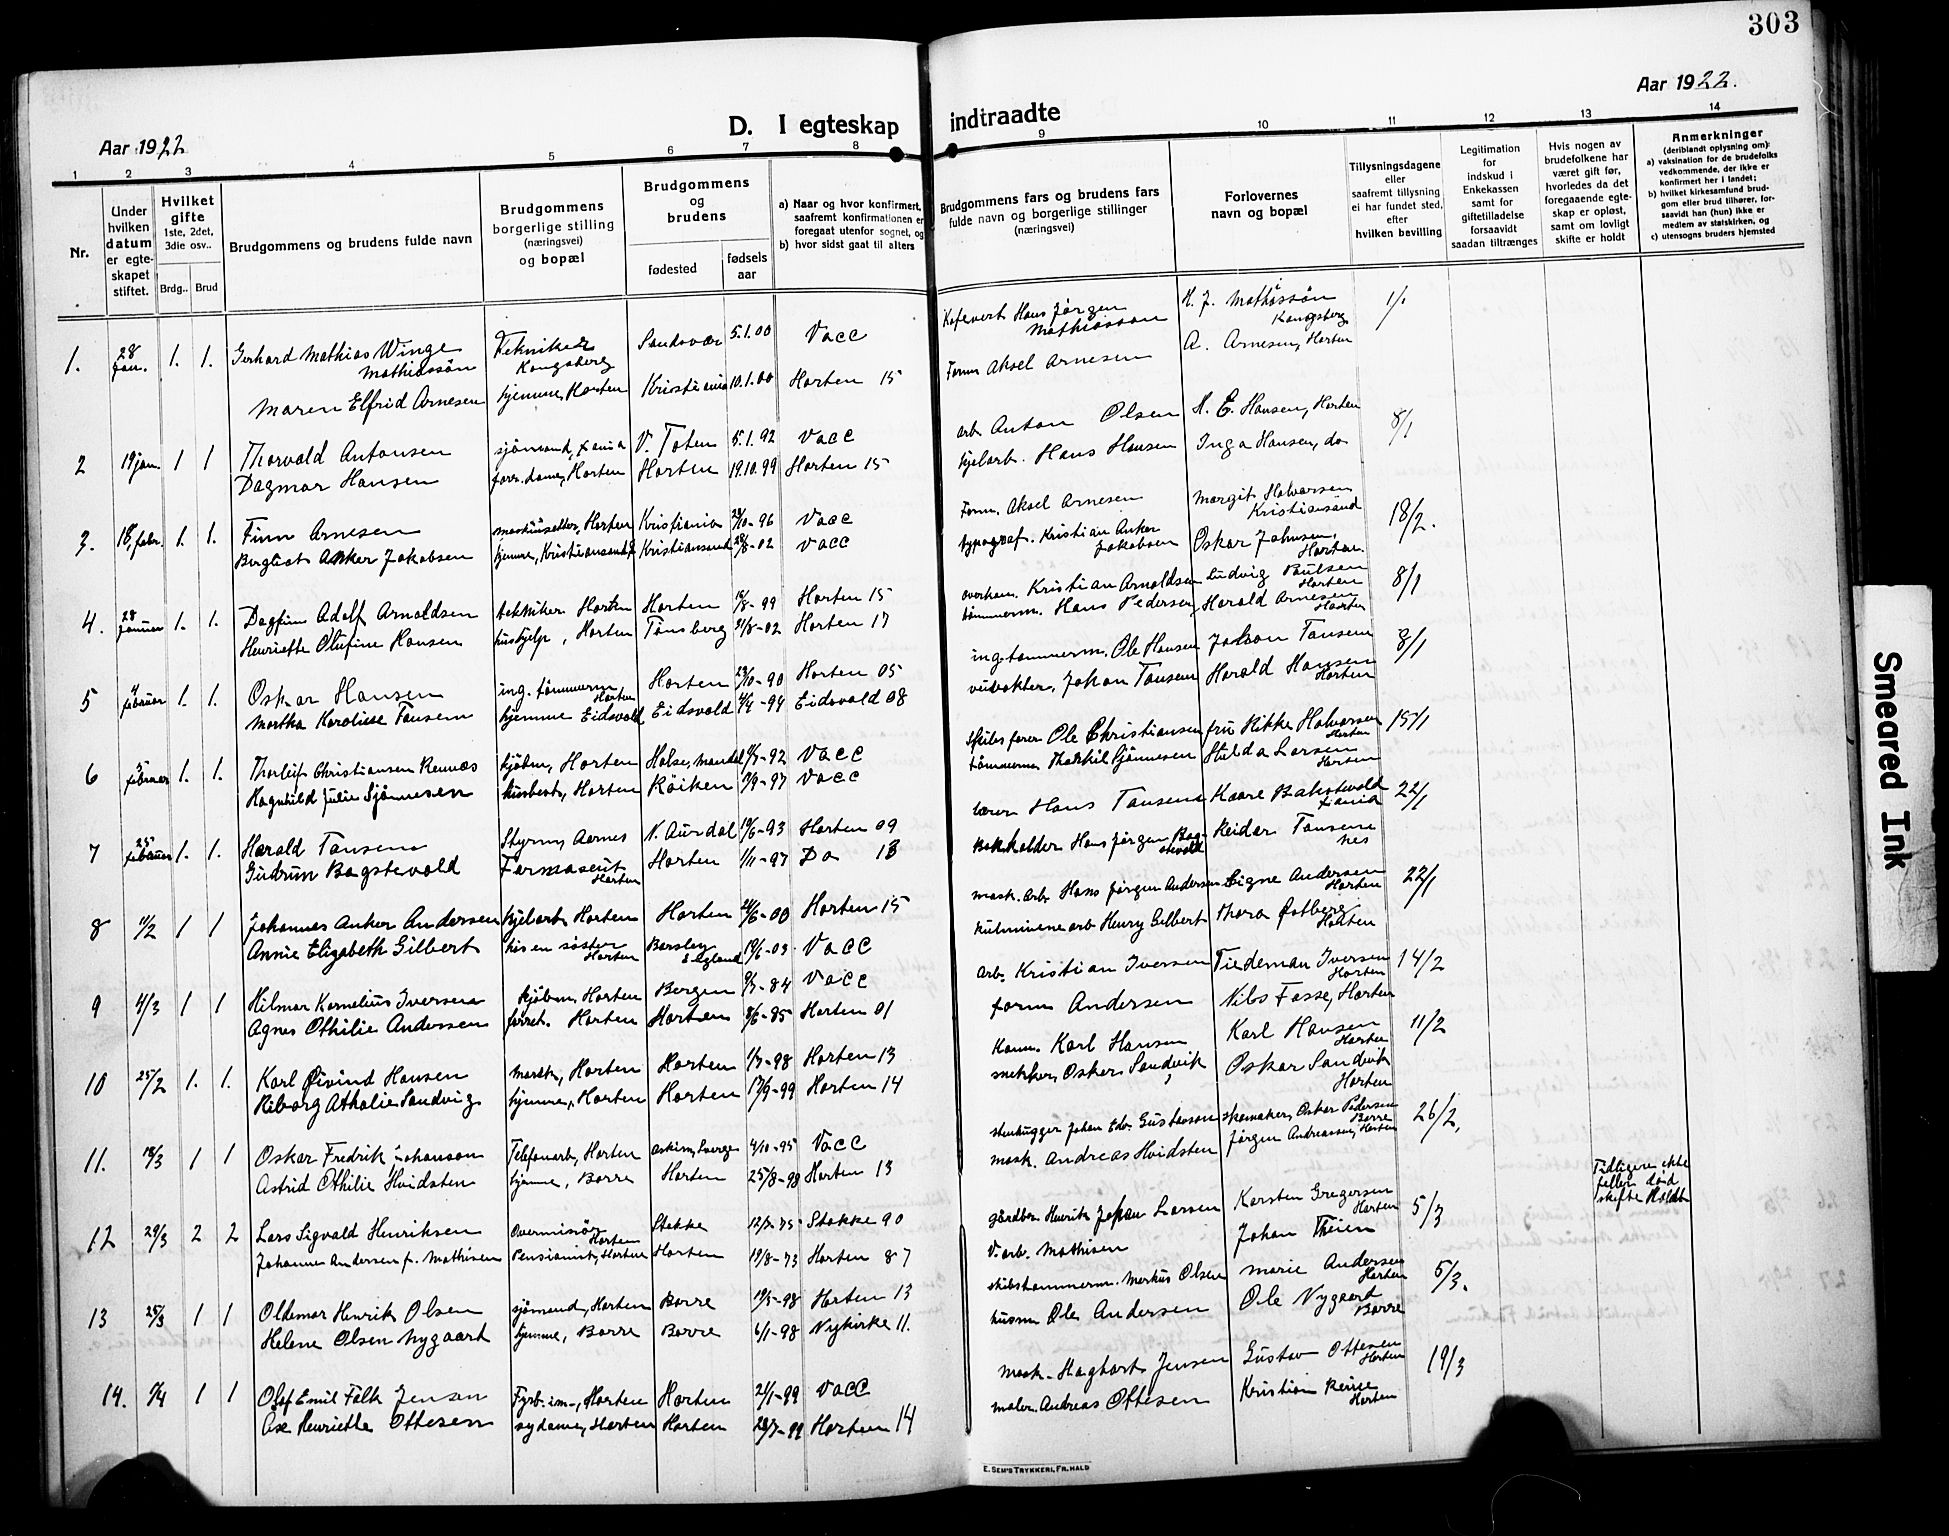 303
Aar 1922
D. I egteskap
indtraadte
Aar 1922.
1 2 3 4 5 6 7 8
9 10 11 12 13 14
Nr.
Under hvilken datum er egte-skapet stiftet.
Hvilket gifte 1ste, 2det, 3die osv..
Brdg.. Brud
Brudgommens og brudens fulde navn
Brudgommens borgerlige stilling (næringsvei) og bopæl
Brudgommens og brudens
fødested
fødsels aar
a) Naar og hvor konfirmert, saafremt konfirmationen er foregaat utenfor sognet, og
b) hvor sidst gaat til alters
Brudgommens fars og brudens fars fulde navn og borgerlige stillinger (næringsvei)
Forlovernes navn og bopæl
Tillysningsdagene eller saafremt tillysning ei har fundet sted, efter hvilken bevilling
Legitimation for indskud i Enkekassen samt for giftetilladelse forsaavidt saadan tiltrænges
Hvis nogen av brudefolkene har været gift før, hvorledes da det foregaaende egte-skap er opløst, samt om lovligt skifte er holdt
Anmerkninger
(deriblandt oplysning om):
a) vaksination for de brudefolks vedkommende, der ikke er konfirmert her i landet;
b) hvilket kirkesamfund brud-gom eller brud tilhører, for-saavidt han (hun) ikke er medlem av statskirken, og
c) utensogns bruders hjemsted
1. 28 jan. 1. 1. Gerhard Mathias Winge Mathiassøn Tekniker Kongsberg Sandsvær 5.1.00 Vacc Hans Jørgen Mathiassøn H. J. Mathiassøn Kongsberg 1/1
Maren Elfrid Arnesen hjemme, Horten Kristiania 10.1.00 Horten 15 Form Aksel Arnesen A. Arnesen, Horten
2 19 jan. 1 1 Thorvald Antonsen sjömand, Xania V. Toten 5.1.92 Vacc arb. Anton Olsen H. E. Hansen, Horten 8/1
Dagmar Hansen Horten Horten 19.10.99 Horten 15 kjelarb. Hans Hansen Inga Hansen, do
3. 18, febr. 1. 1. Finn Arnesen Horten Kristiania 10-96 Vacc Form. Aksel Arnesen Margit Halvorsen Kristiansand 18/2.
Anker Jakobsen hjemme, Kristiansand Kristiansand 8-02 Vacc typograf. Kristian Anker Jakobsen Oskar Johnsen, Horten.
4. 28 januar 1. 1. Dagfinn Adolf Arnoldsen tekniker Horten Horten 8-99 Horten 15 Kristian Arnoldsen Ludvig Paulsen Horten 8/1
Henriette Olufine Hansen hushjelp, Horten Tønsberg 8-02 Horten 17 tömmerm. Hans Pedersen, Harald Arnesen Horten
5 4 februar 1. 1. Oskar Hansen ing. tömmerm Horten Horten 10-90 Horten 05 ing. tømmerm. Ole Hansen Johan Tansem 8/1
Martha Karoline Tansem hjemme Eidsvold Eidsvold 4-94 Eidsvold 08 Johan Tansem Harald Hansen Horten
6 5 februar 1. 1. Thorleif Christiansen kjøbm, Horten Halse, Mandal 92 Vacc Ole Christiansen fru Rikke Halvorsen Horten 15/1
Ragnhild Julie Sjønnesen Horten Röiken 9-97 Vacc tömmerm Sjønnesen Hilda Larsen Horten
7 25 februar 1. 1. Harald Tansem Styrm, Aarnes N. Aurdal 6-93 Horten 09 lærer Hans Tansem Kaare Xania 22/1
Gudrun Bagstevold Farmaseut Horten Horten 1/11-97 Do 13 Bokholder Hans Jørgen Bagstevold Reidar Tansem
8 11/2 1 1 Johannes Anker Andersen kjelarb Horten Horten 6-00 Horten 15 mask. arb Hans Jørgen Andersen Signe Andersen Horten 22/1
Annie Elizabeth Gilbert hos en søster Horten Barsley England 19/6-03. Vacc kulminene arb Henry Gilbert Thora Östberg Horten
9 4/3 1 1 Hilmar Kornelius Iversen kjöbm, Horten Bergen 84 Vacc arb. Kristian Iversen Tiedeman Iversen Horten 14/2
Agnes Othilie Andersen forret. Horten Horten 6-85 Horten 01 form Andersen Nils Fosse, Horten
10 25/2 1. 1. Karl Øivind Hansen Horten Horten 98 Horten 13 Kann. Karl Hansen Karl Hansen Horten 11/2
Riborg Athalie Sandvig hjemme, Horten Horten 17/9-99 Horten 14 snekker, Oskar Sandvik Oskar Sandvik Horten
11. 18/3 1 1 Oskar Fredrik Johanson Telefonarb, Horten Sverige 4/10-95 Vacc stenhugger Johan Edv. Gustavson skomaker, Oskar Pedersen Borre 26/2,
Astrid Othilie Hvidsten hjemme, Borre Horten 25/8-98 Horten 13 mask. Andreas Hvidsten Jørgen Andreassen, Horten
12 29/3 2 2 Lars Sigvald Henriksen Horten Stokke 75 Stokke 90 gårdbr. Henrik Johan Larsen Karsten Gregersen Horten 5/3 Tidligere ekte feller död skifte holdt
Johanne Andersen f. Mathisen Horten Horten 19/8-73 Horten 87 V. arb. Mathisen Johan Theien
13 25/3 1 1 Oldemar Henrik Olsen sjømand, Horten Borre 98 Horten 13 skibstømmerm. Markus Olsen Marie Andersen Horten 5/3.
Helene Olsen Nygaard hjemme, Borre Borre 6/1-98 Nykirke 11. husm Ole Andersen Ole Nygaard Borre
14. 1 1 Olaf Emil Falk Jensen Horten Horten 21/1-99 Vacc mask. Jensen Gustav Ottesen Horten 19/3
Henriette Ottesen sydame, Horten Horten 99 Horten 14 maler. Andreas Ottesen Kristian Horten
E. SEM'S TRYKKERI, FR.HALD
Smeared Ink